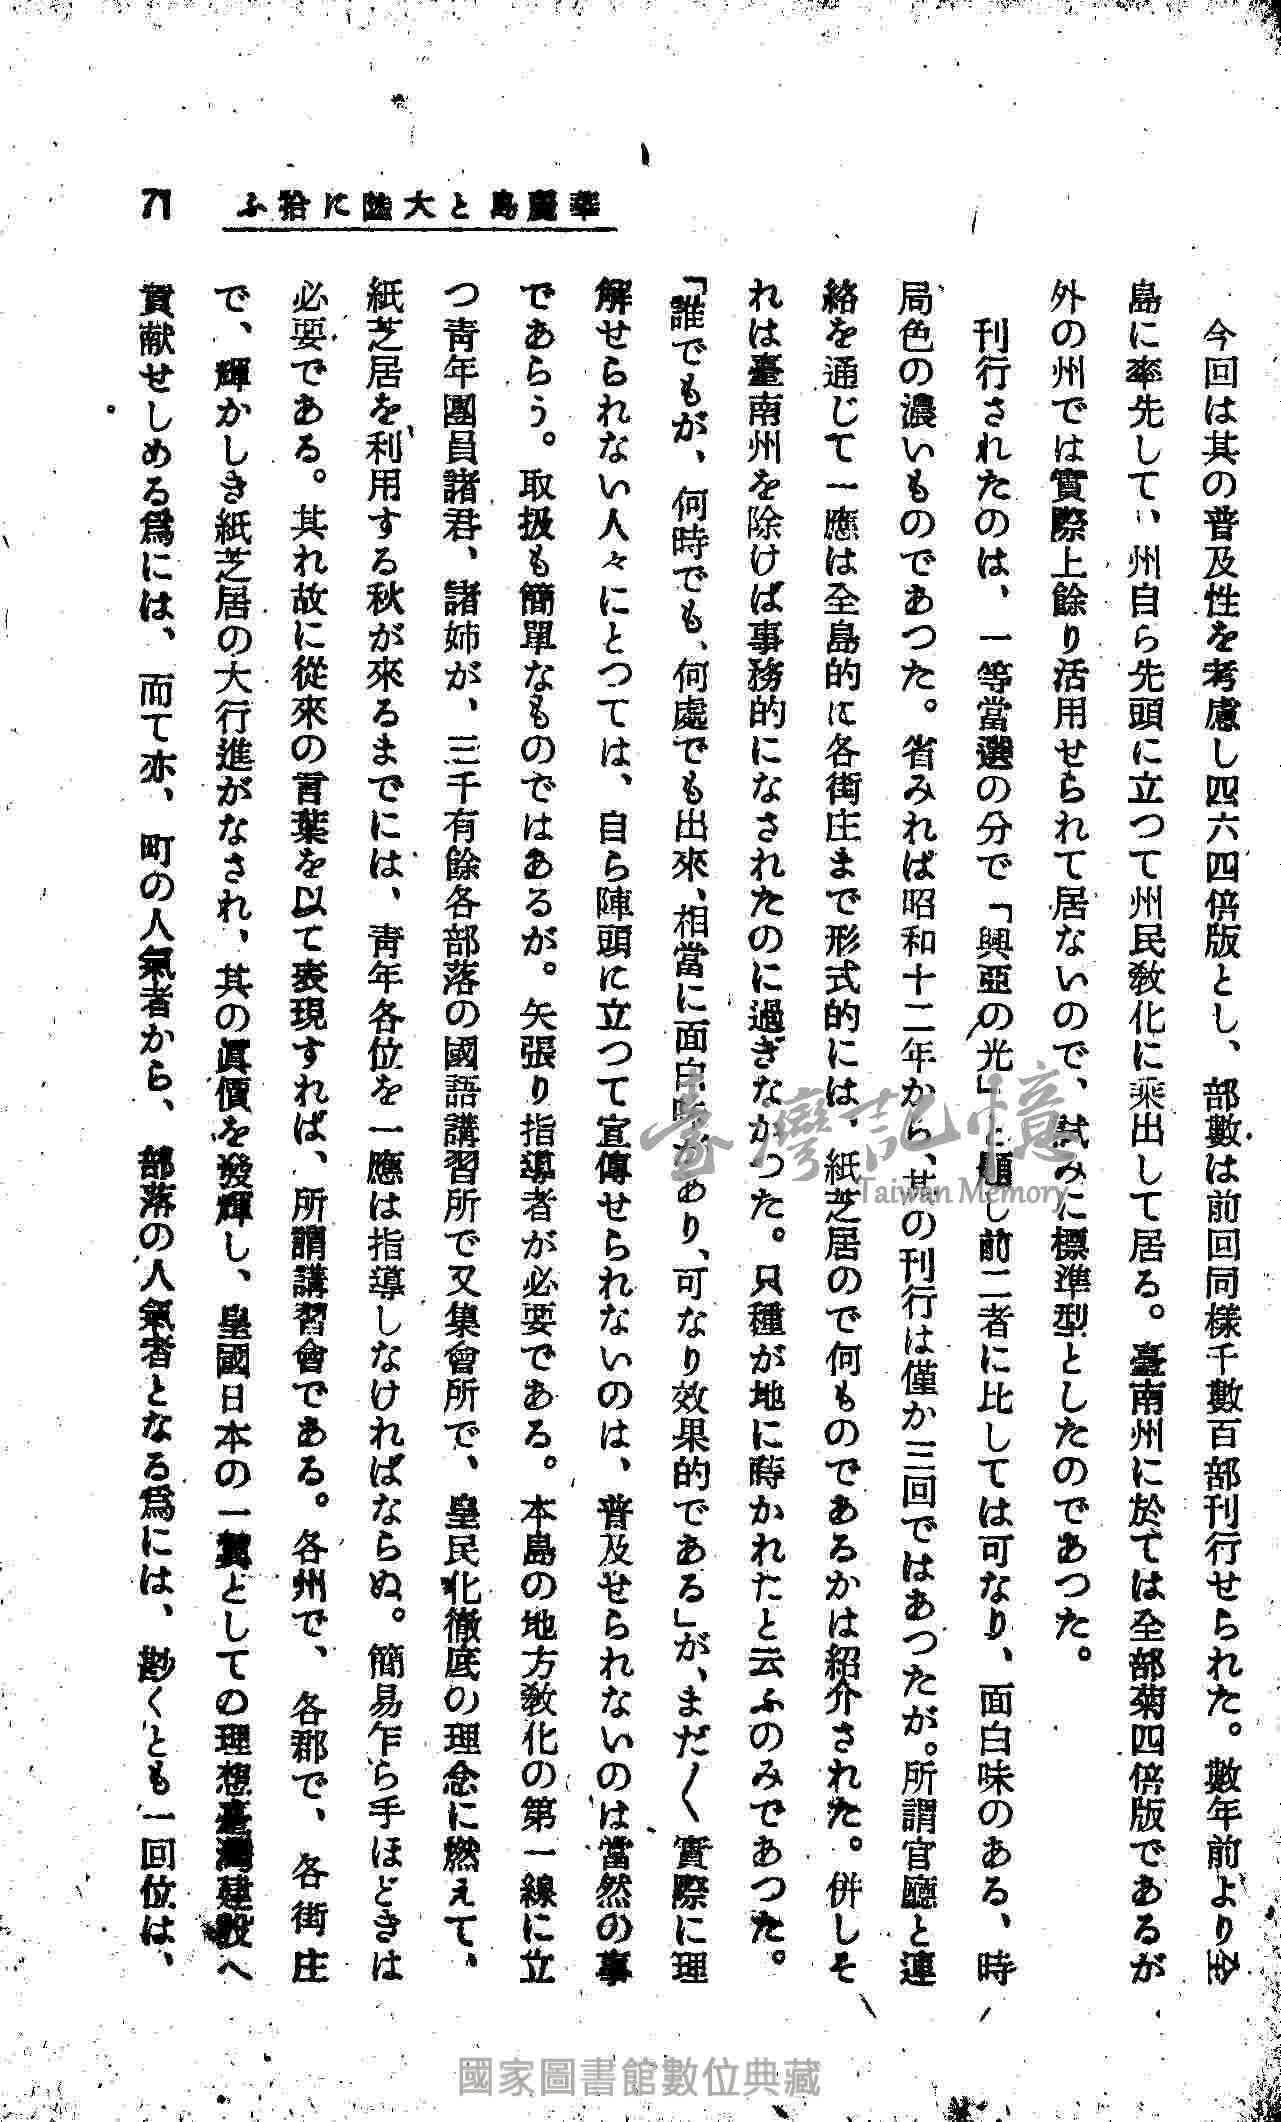 華麗島と大陸に拾ふ
71
今回は其の普及性を考慮し四六四倍版とし、部數は前回同樣千數百部刊行せられた。數年前より全
島に率先して、州自ら先頭に立つて州民敎化に乘出して居る。臺南州に於ては全部菊四倍版であるが
外の州では實際上餘り活用せられて居ないので、試みに標準型としたのであつた。
刊行されたのは、一等當選の分で「興亞の光」と題し前二者に比しては可なり、面白味のある、時
局色の濃いものであつた。省みれば昭和十二年から、其の刊行は僅か三回ではあつたが。所謂官廳と連
絡を通じて一應は全島的に各街庄まで形式的には、紙芝居ので何ものであるかは紹介された。併しそ
れは臺南州を除けば事務的になされたのに過ぎなかつた。只種が地に蒔かれたと云ふのみであつた。
「誰でもが、何時でも、何處でも出來、相當に面白味があり、可なり效果的である」が、まだ〱實際に理
解せられない人々にとつては、自ら陣頭に立つて宣傳せられないのは、普及せられないのは當然の事
であらう。取扱も簡單なものではあるが。矢張り指導者が必要である。本島の地方敎化の第一線に立
つ靑年團員諸君、諸姉が、三千有餘各部落の國語講習所で又集會所で、皇民化徹底の理念に燃えて、
紙芝居を利用する秋が來るまでには、靑年各位を一應は指導しなければならぬ。簡易乍ら手ほどきは
必要である。其れ故に從來の言葉を以て表現すれば、所謂講習會である。各州で、各郡で、各街庄
で、輝かしき紙芝居の大行進がなされ、其の眞價を發揮し、皇國日本の一翼としての理想臺灣建設へ
貢献せしめる爲には、而て亦、町の人氣者から、部落の人氣者となる爲には、尠くとも一回位は、
臺灣記憶
Taiwan Memory
國家圖書館數位典藏